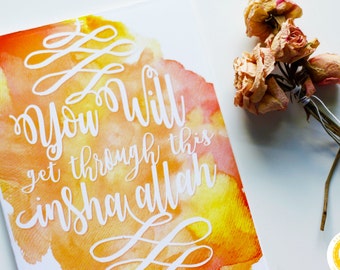 You Will
get through this
insha allah